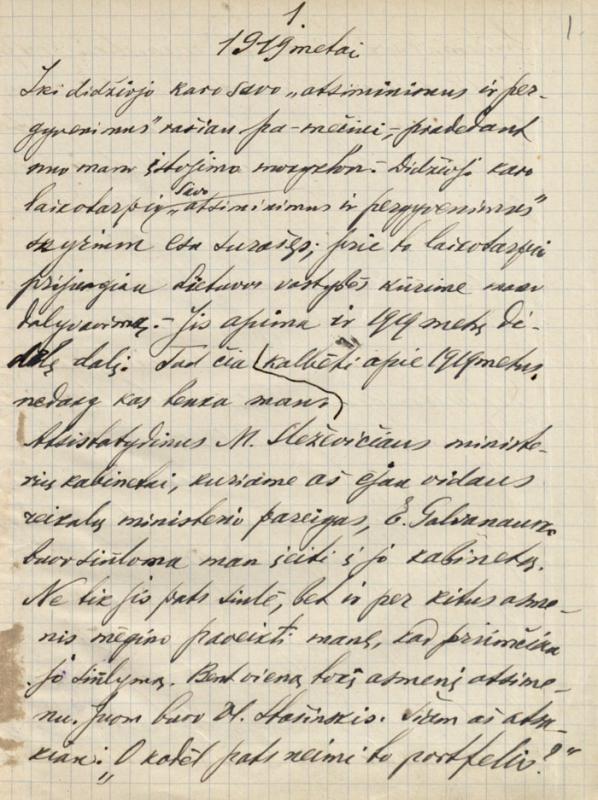 1.
1.
1919 metai
Iki didžiojo karo savo „atsiminimus ir per-
gyvenimus" rašiau pa-mečiui, pradedant
nuo mano įstojimo mokyklon. Didžiojo karo
savo
laikotarpiu „atsiminimus ir pergyvenimus"
skyrium esu surašęs; prie to laikotarpio
prijungiau Lietuvos valstybės kūrime mano
dalyvavimą. Jis apima ir 1919 metų di-
delę dalį. Tad čia kalbėti apie 1919 metus,
nedaug kas tenka man.
Atsistatydinus M. Sleževičiaus ministe-
rių kabinetui, kuriame aš ėjau vidaus
reikalų ministerio pareigas, E. Galvanausko
buvo siūloma man įeiti į jo kabinetą.
Ne tik jis pats siūlė, bet ir per kitus asme-
nis mėgino paveikti mane, kad priimčiau
jo siūlymą. Bent vieną tokį asmenį atsime-
nu. Juom buvo Vl. Stašinskis. Šiam aš atsa-
kiau: „O kodėl pats neimi to portfelio?"